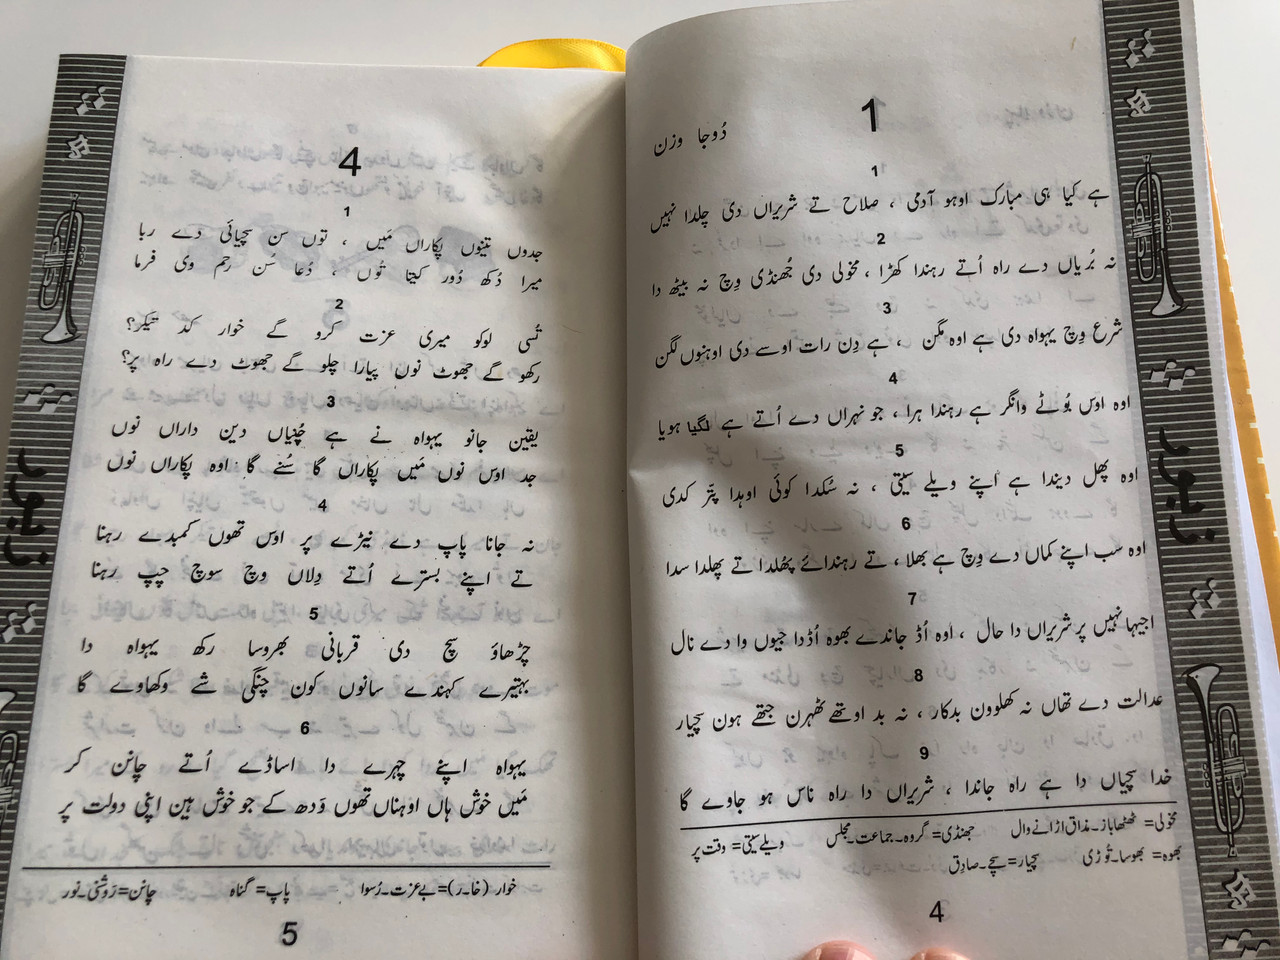 زبور
1
دُوجا وزن
1
ہے کیا ہی مبارک اوہو آدمی ، صلاح تے شریراں دی چلدا نہیں
2
نہ بُریاں دے راہ اُتے رہندا کھڑا ، مخولی دی جُھنڈی وِچ نہ بیٹھ دا
3
شرع وِچ یہواہ دی ہے اوہ مگن ، ہے دِن رات اوسے دی اوہنوں لگن
4
اوہ اوَس بُوٹے وانگر ہے رہندا ہرا ، جو نہراں دے اُتے ہے لگیا ہویا
5
اوہ پھل دیندا ہے اپنے ویلے سیتی ، نہ سُکدا کوئی اوہدا پتّر کدی
6
اوہ سب اپنے کماں دے وِچ ہے بھلا ، تے رہندائے پھُلدا تے پھلدا سدا
7
اجیہا نہیں پر شریراں دا حال ، اوہ اُڈ جاندے بھوہ اُڈدا جیوں وا دے نال
8
عدالت دے تھاں نہ کھلوون بدکار ، نہ بد اوتھے ٹھہرن جتھے ہون سچیار
9
خدا سچیاں دا ہے راہ جاندا ، شریراں دا راہ ناس ہو جاوے گا
مخولی= ٹھٹھاباز۔مذاق اڑانے وال جھنڈی= گروہ۔جماعت۔مجلس ویلے سیتی= وقت پر
بھوہ= بھوسا۔تُوڑی سچیار= سچے۔صادِق
4
زبور
4
1
جدوں تینوں پکاراں مَیں ، توں سن سچیائی دے ربا
میرا دُکھ دُور کیتا تُوں ، دُعا سُن رحم وی فرما
2
تُسی لوکو میری عزت کرو گے خوار کد تیکر؟
رکھو گے جھوٹ نوں پیارا چلو گے جھوٹ دے راہ پر؟
3
یقین جانو یہواہ نے ہے چُنیاں دین داراں نوں
جد اوس نوں مَیں پکاراں گا سُنے گا اوہ پکاراں نوں
4
نہ جانا پاپ دے نیڑے پر اوس تھوں کمبدے رہنا
تے اپنے بسترے اُتے دِلاں وچ سوچ چپ رہنا
5
چڑھاؤ سچ دی قربانی بھروسا رکھ یہواہ دا
بہتیرے کہندے سانوں کون چنگی شے وکھاوے گا
6
یہواہ اپنے چہرے دا اساڈے اُتے چانن کر
مَیں خوش ہاں اوہناں تھوں وَدھ کے جو خوش ہین اپنی دولت پر
خوار (خا۔ر)=بےعزت۔رُسوا پاپ= گناہ چانن=رَوشنی۔نور
5